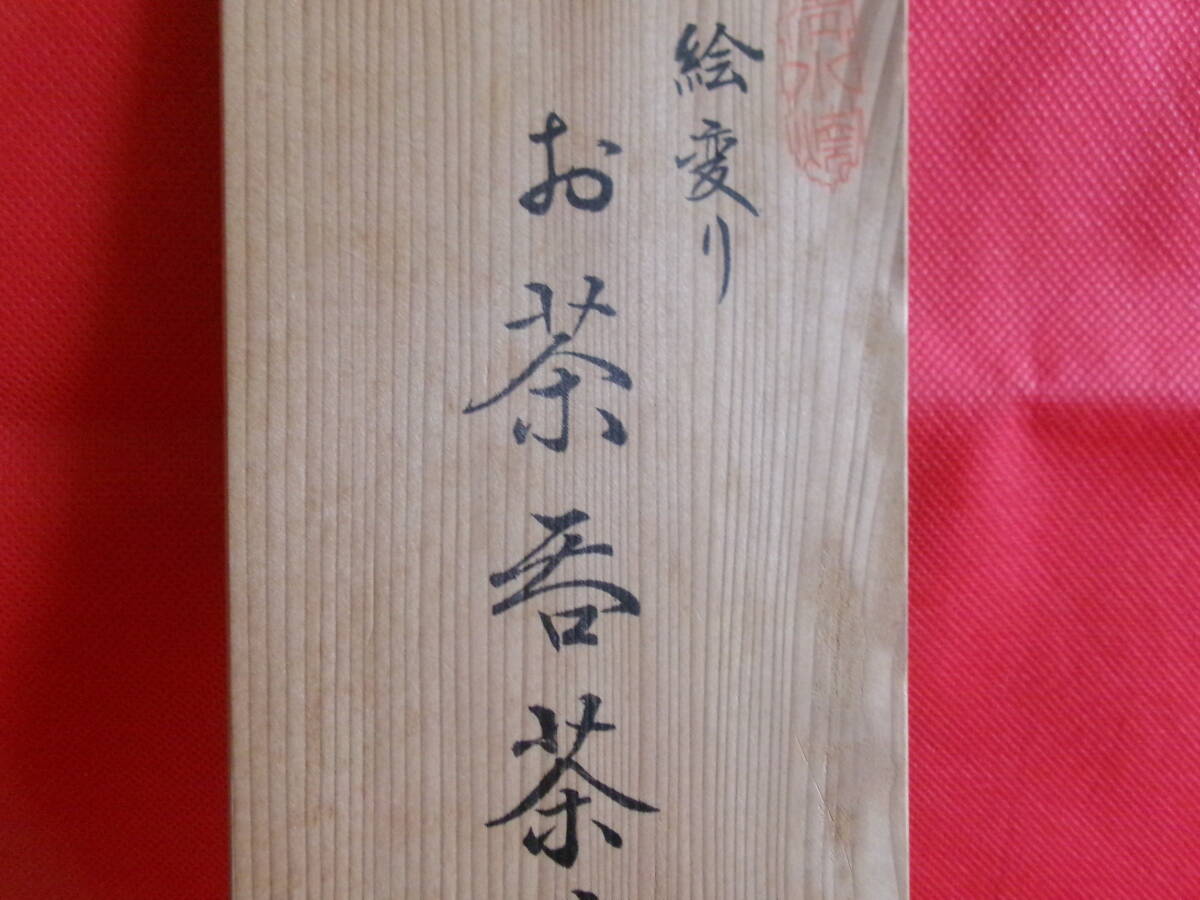 絵変り
お茶呑茶